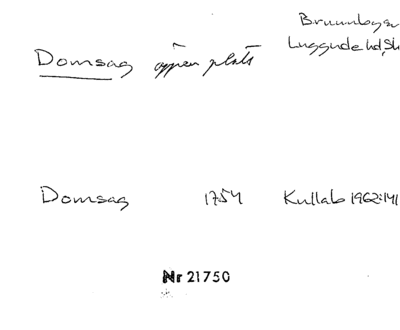 Brunnby sn
Domsag öppen plats Luggude hd, Sk
Domsag 1754 Kullab 1962:141
Nr 21750